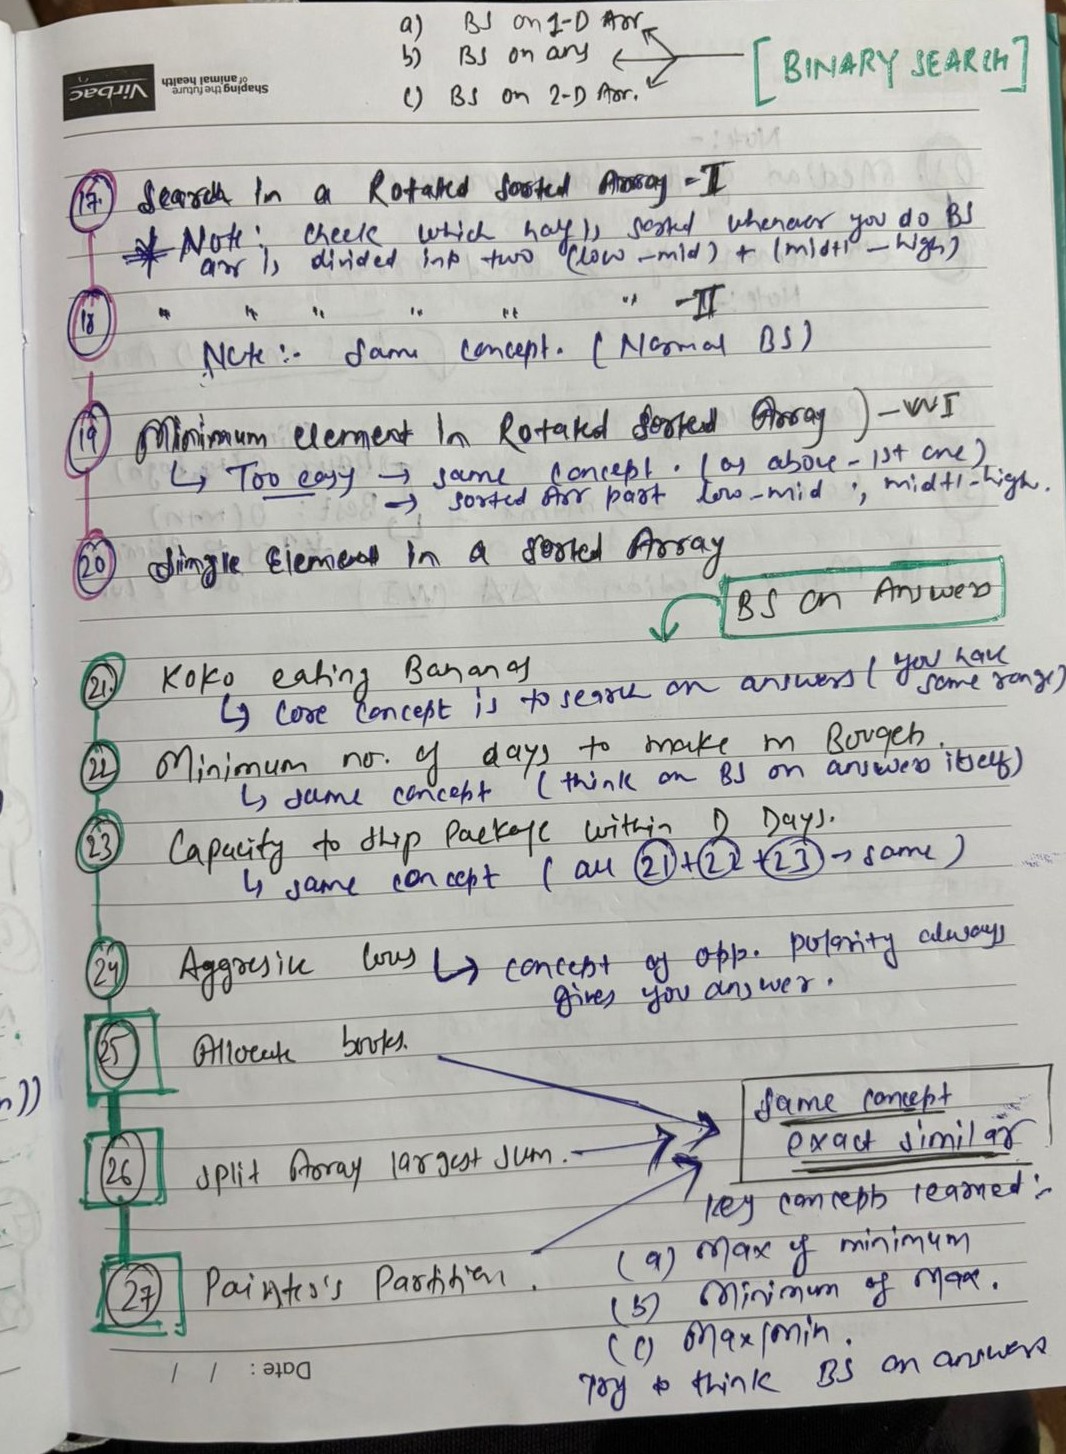 a) BS on 1-D Arr
b) BS on ans
c) BS on 2-D Arr.
[BINARY SEARCH]
Virbac
Shaping the future
of animal health
17. Search In a Rotated Sorted Array - I
* Note: check which half is sorted whenever you do BS
arr is divided into two (low-mid) + (mid+1-high)
18 " " " " " " - II
Note:- Same concept. (Normal BS)
19 Minimum element In Rotated Sorted Array) - VVI
↳ Too easy → same concept. (as above - 1st one)
→ sorted Arr part low-mid ; mid+1-high.
20 Single Element In a Sorted Array
BS on Answers
21. Koko eating Bananas
↳ Core concept is to search on answers (you have
some range)
22 Minimum no. of days to make m Bouqets.
↳ same concept (think on BS on answers itself)
23 Capacity to ship Package within D Days.
↳ same concept (all 21 + 22 + 23 → same)
24 Aggresive cows ↳ concept of opp. polarity always
gives you answer.
25 Allocate books.
same concept
exact similar
26 Split Array largest sum.
Key concepts learned:-
27 Painter's Partition.
(a) Max of minimum
(b) Minimum of Max.
(c) Max/min.
Try to think BS on answers
Date : / /